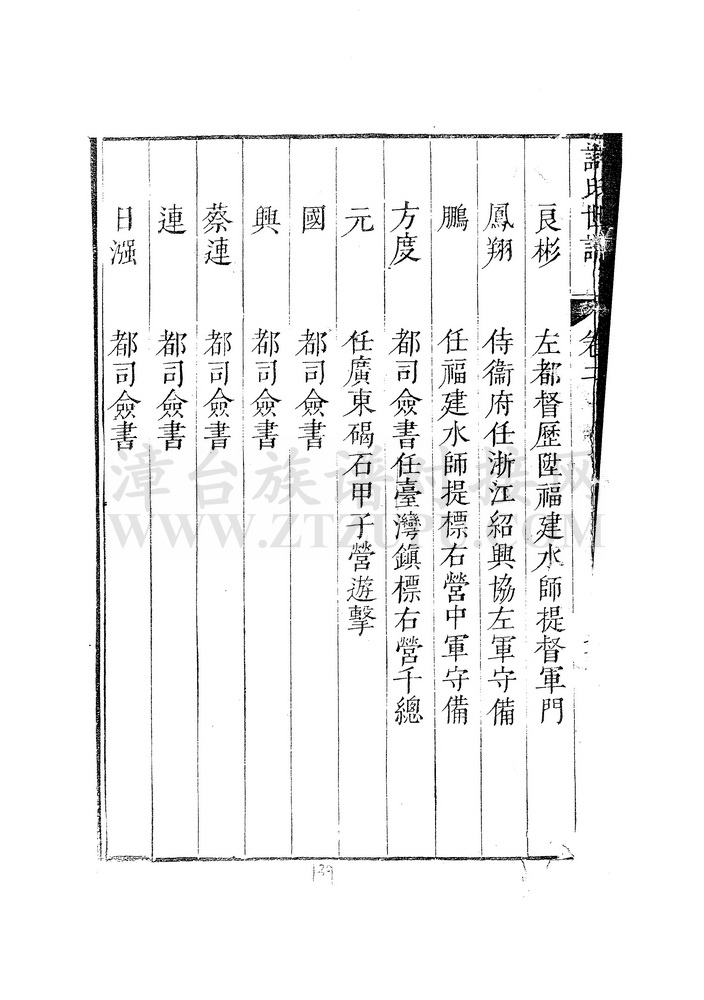 許氏世譜 卷二
良彬 左都督歷陞福建水師提督軍門
鳳翔 侍衞府任浙江紹興協左軍守備
鵬 任福建水師提標右營中軍守備
方度 都司僉書任臺灣鎮標右營千總
元 任廣東碣石甲子營遊擊
國 都司僉書
興 都司僉書
蔡連 都司僉書
連 都司僉書
日漒 都司僉書
139
漳台族谱对接网
WWW.ZTZUPU.COM